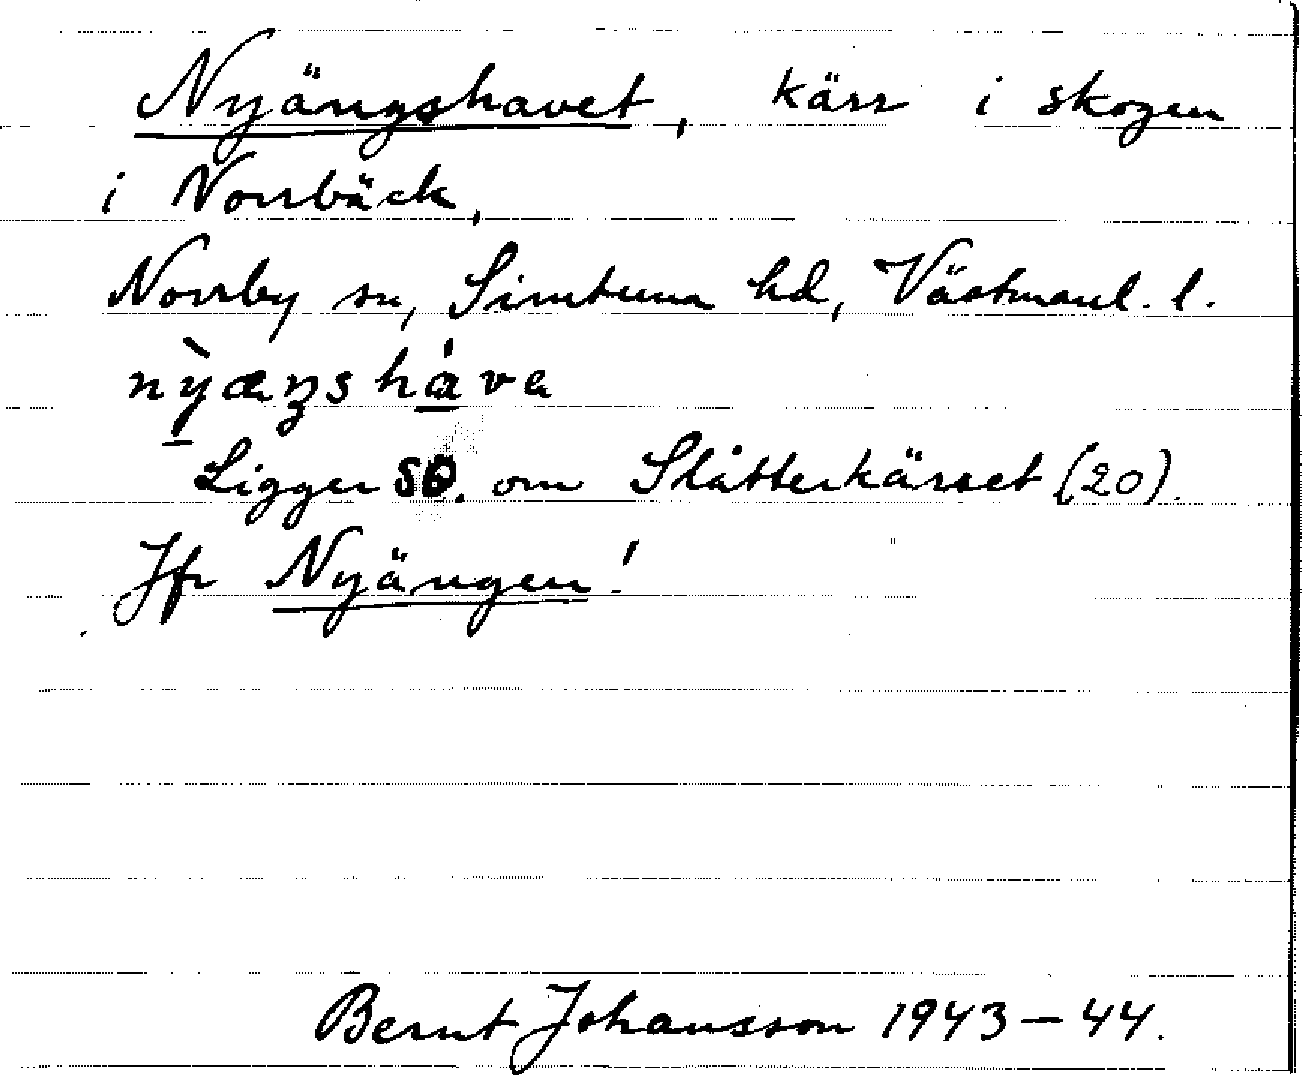 Nyängshavet, kärr i skogen
i Norrbäck,
Norrby sn, Simtuna hd, Västmanl. l.
nỳæŋsháva
Ligger SÖ. om Slåtterkärret (20).
Jfr Nyängen!
Bernt Johansson 1943-44.